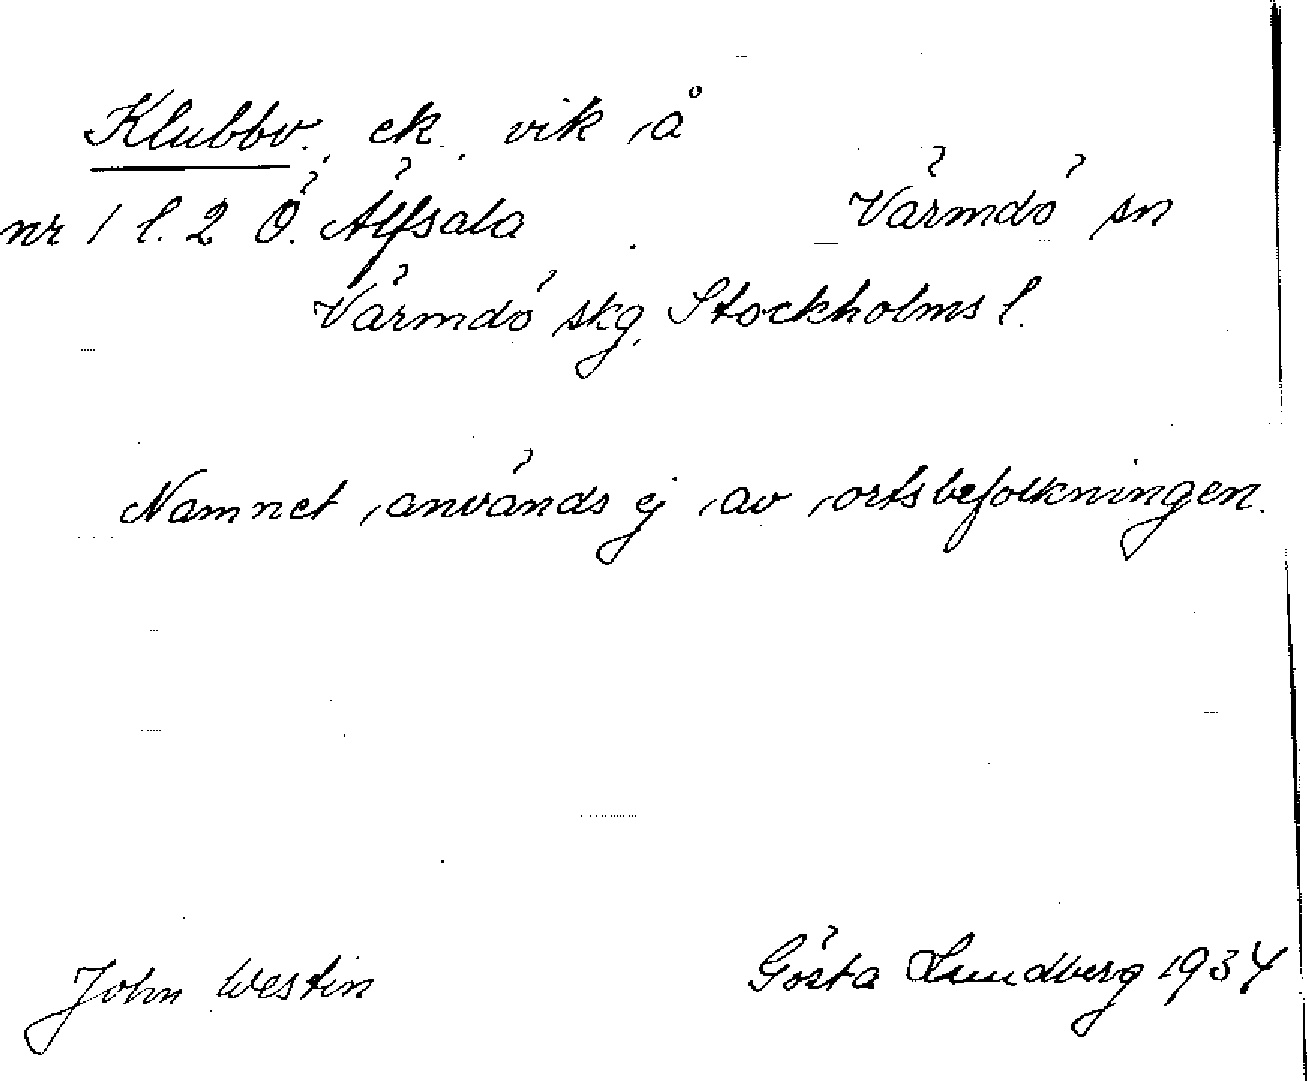 Klubbv., ek. vik å
nr 1 l. 2 Ö. Älfsala Värmdö sn
Värmdö skg, Stockholms l.
Namnet används ej av ortsbefolkningen.
John Westin Gösta Lundberg 1934